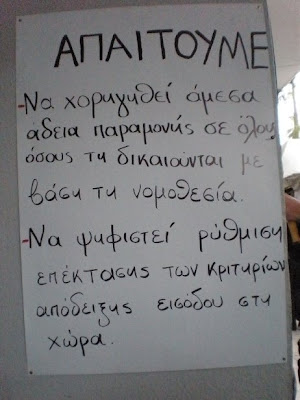 ΑΠΑΙΤΟΥΜΕ
-Να χορηγηθεί άμεσα
άδεια παραμονής σε όλους
όσους τη δικαιούνται με
βάση τη νομοθεσία.
-Να ψηφιστεί ρύθμιση
επέκτασης των κριτηρίων
απόδειξης εισόδου στη
χώρα.